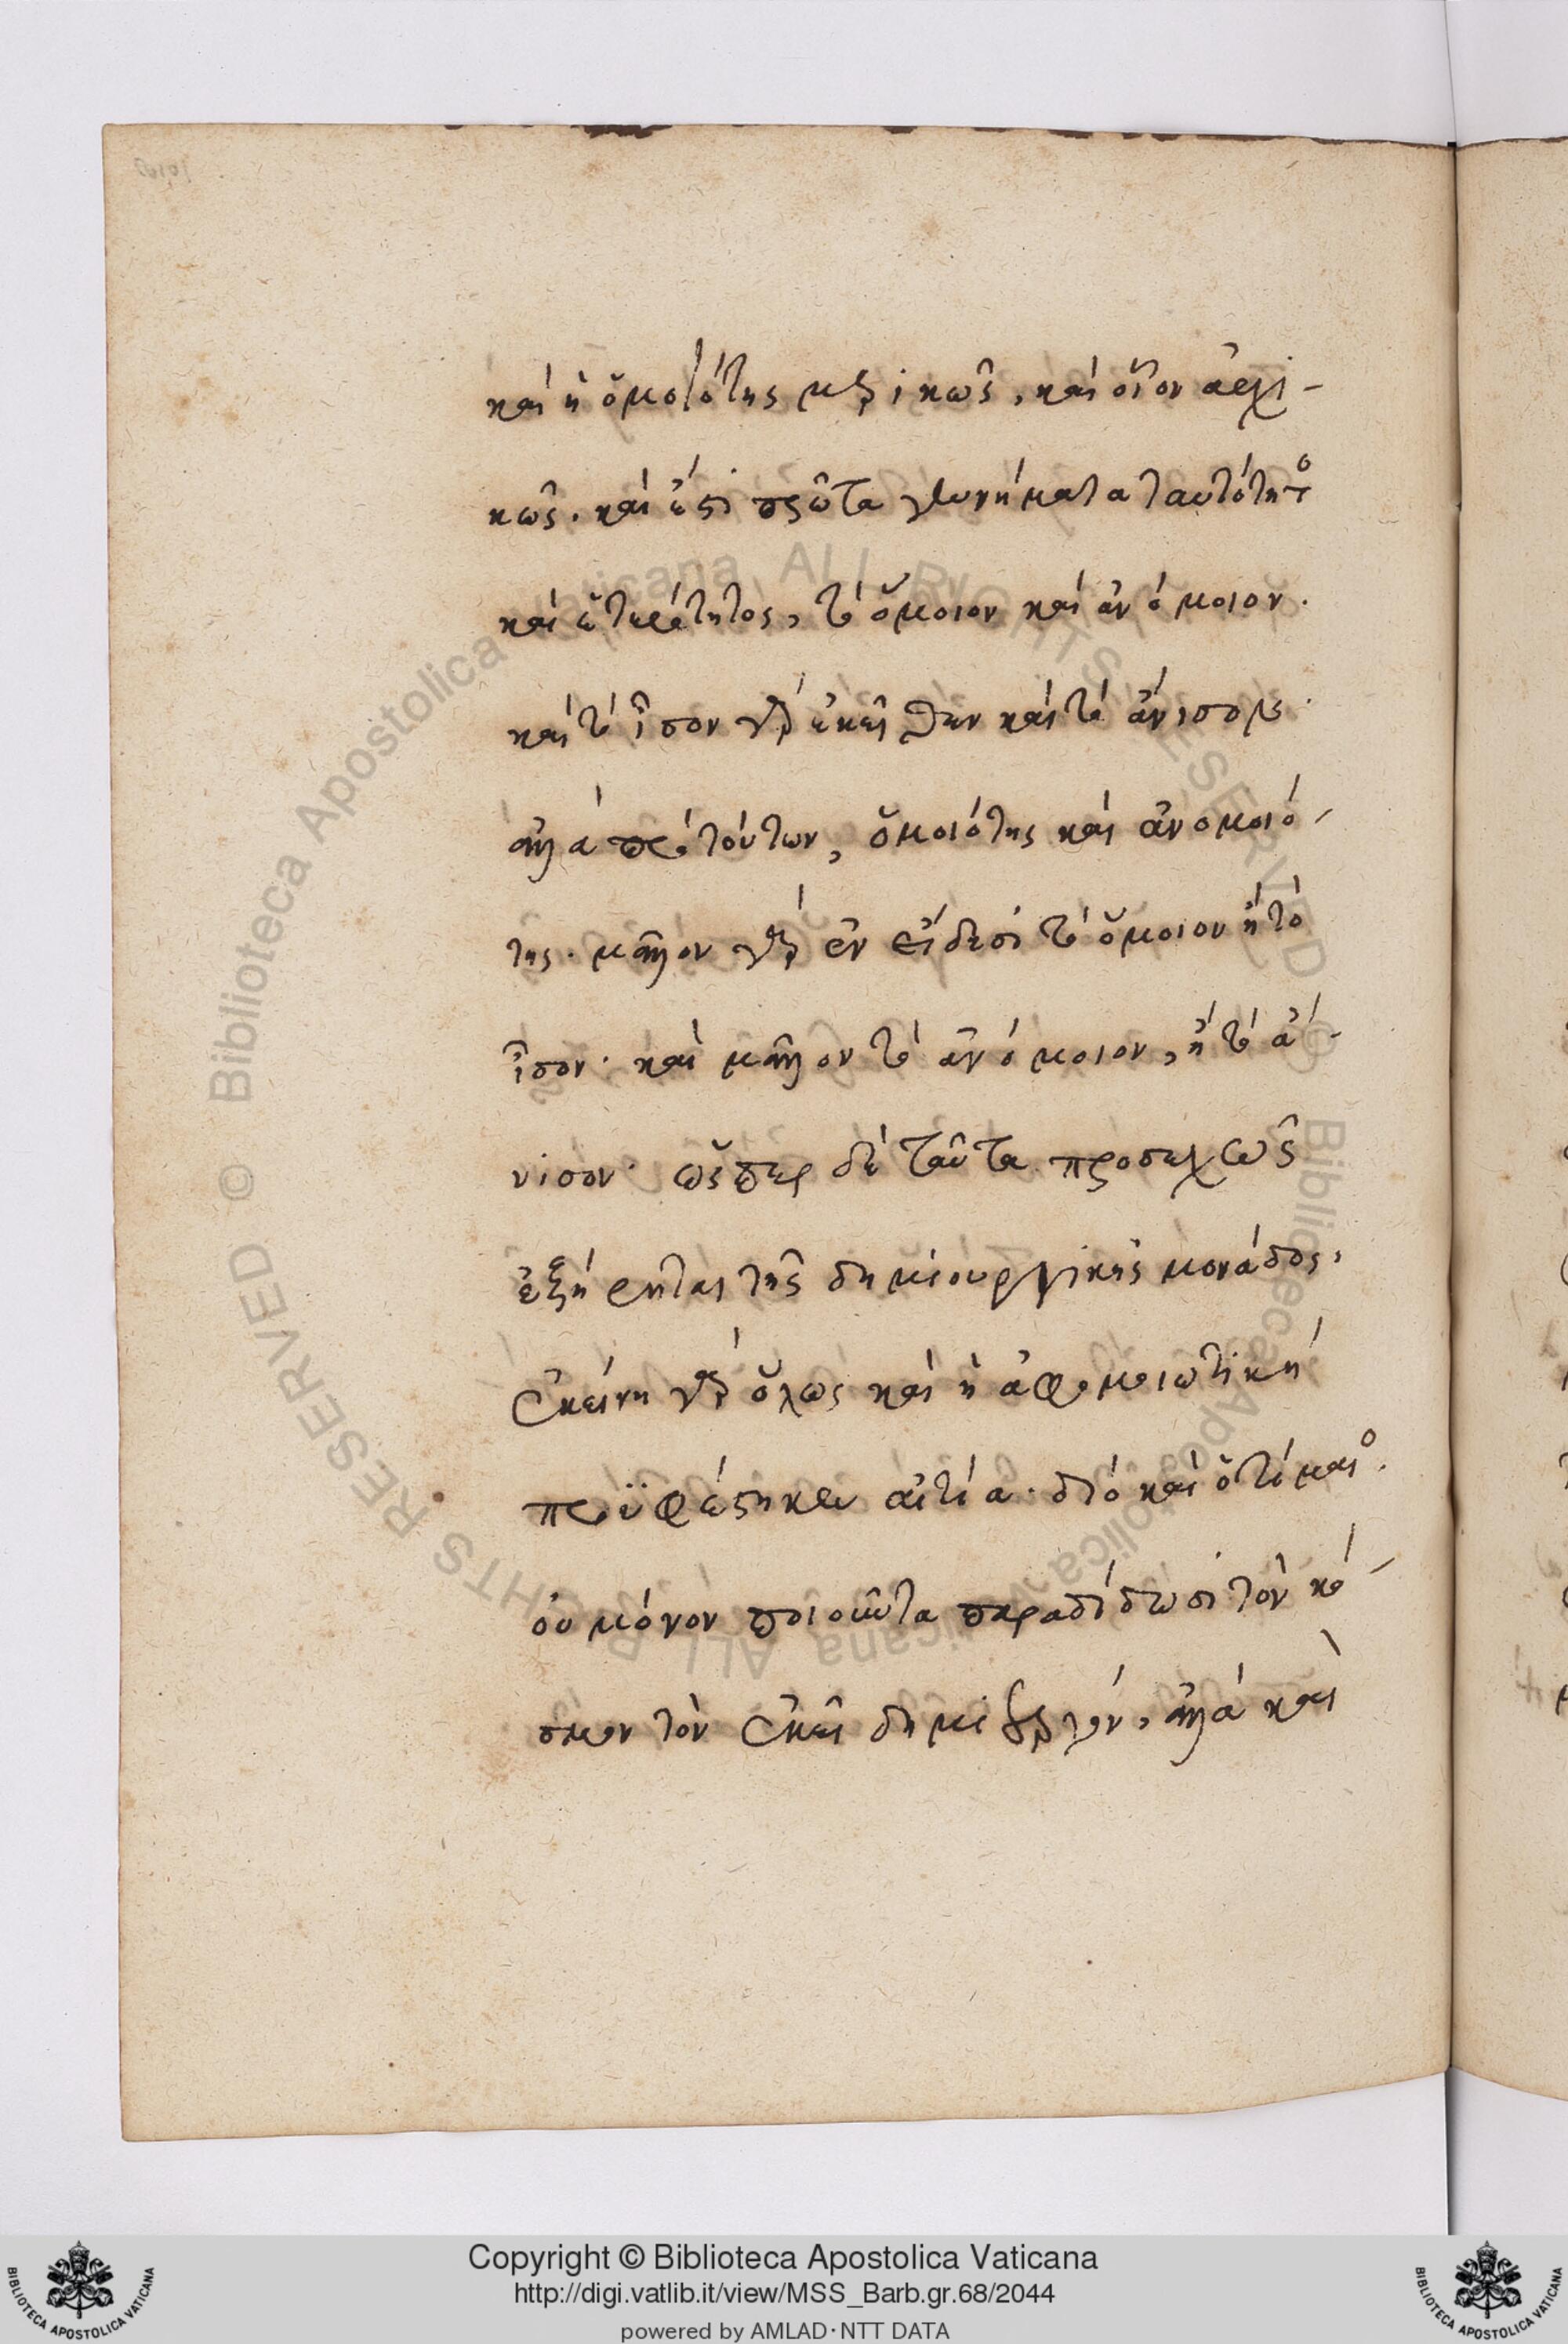 καὶ ἡ ὁμοιότης μερικῶς, καὶ οἷον ἀρχι-
κῶς. καὶ ἔστι πρῶτα γεννήματα ταυτότητος
καὶ ἑτερότητος, τὸ ὅμοιον καὶ ἀνόμοιον.
καὶ τὸ ἴσον γὰρ ἐκεῖθεν καὶ τὸ ἄνισον·
ἀλλὰ πρὸ τούτων, ὁμοιότης καὶ ἀνομοιό-
της. μᾶλλον γὰρ ἐν εἴδεσι τὸ ὅμοιον ἢ τὸ
ἴσον· καὶ μᾶλλον τὸ ἀνόμοιον, ἢ τὸ ἄ-
νισον· ὥσπερ δὲ ταῦτα προσεχῶς
ἐξήρηται τῆς δημιουργικῆς μονάδος,
ἐκείνη γὰρ ὅλως καὶ ἡ ἀφομοιωτικὴ
προϋφέστηκεν αἰτία. διὸ καὶ ὁ τίμαιος.
οὐ μόνον ποιοῦντα παραδίδωσι τὸν κό-
σμον τὸν ἐκεῖ δημιουργὸν, ἀλλὰ καὶ
Copyright © Biblioteca Apostolica Vaticana
http://digi.vatlib.it/view/MSS_Barb.gr.68/2044
powered by AMLAD·NTT DATA
BIBLIOTECA APOSTOLICA VATICANA
BIBLIOTECA APOSTOLICA VATICANA
Biblioteca Apostolica Vaticana ALL RIGHTS RESERVED ©
Biblioteca Apostolica Vaticana ALL RIGHTS RESERVED ©